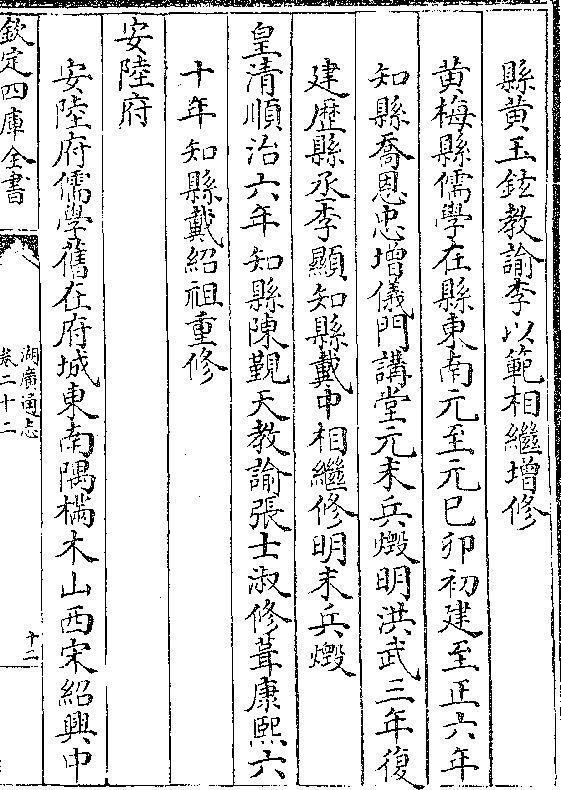 縣黄玉鉉教諭李以範相繼增修
黄梅縣儒學在縣東南元至元已卯初建至正六年
知縣喬恩忠增儀門講堂元末兵燬明洪武三年復
建歴縣丞李顯知縣戴中相繼修明末兵燬
皇清順治六年知縣陳覲天教諭張士淑修葺康熙六
十年知縣戴紹祖重修
安陸府
安陸府儒學舊在府城東南隅樠木山西宋紹興中
欽定四庫全書
湖廣通志
卷二十二
十二